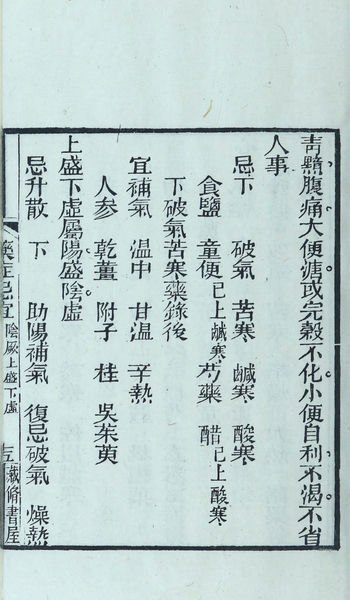 青黯腹痛大便溏或完穀不化小便自利不渴不省
人事
忌下　破氣　苦寒　鹹寒　酸寒
食鹽　童便已上鹹寒　芍藥　醋已上酸寒
下破氣苦寒藥錄後
宜補氣　溫中　甘溫　辛熱
人参　乾薑　附子　桂　吳茱萸
上盛下虛屬陽盛陰虛
忌升散　下　助陽補氣　復忌破氣　燥熱
藥症忌宜　陰厥上盛下虛　五　藏脩書屋